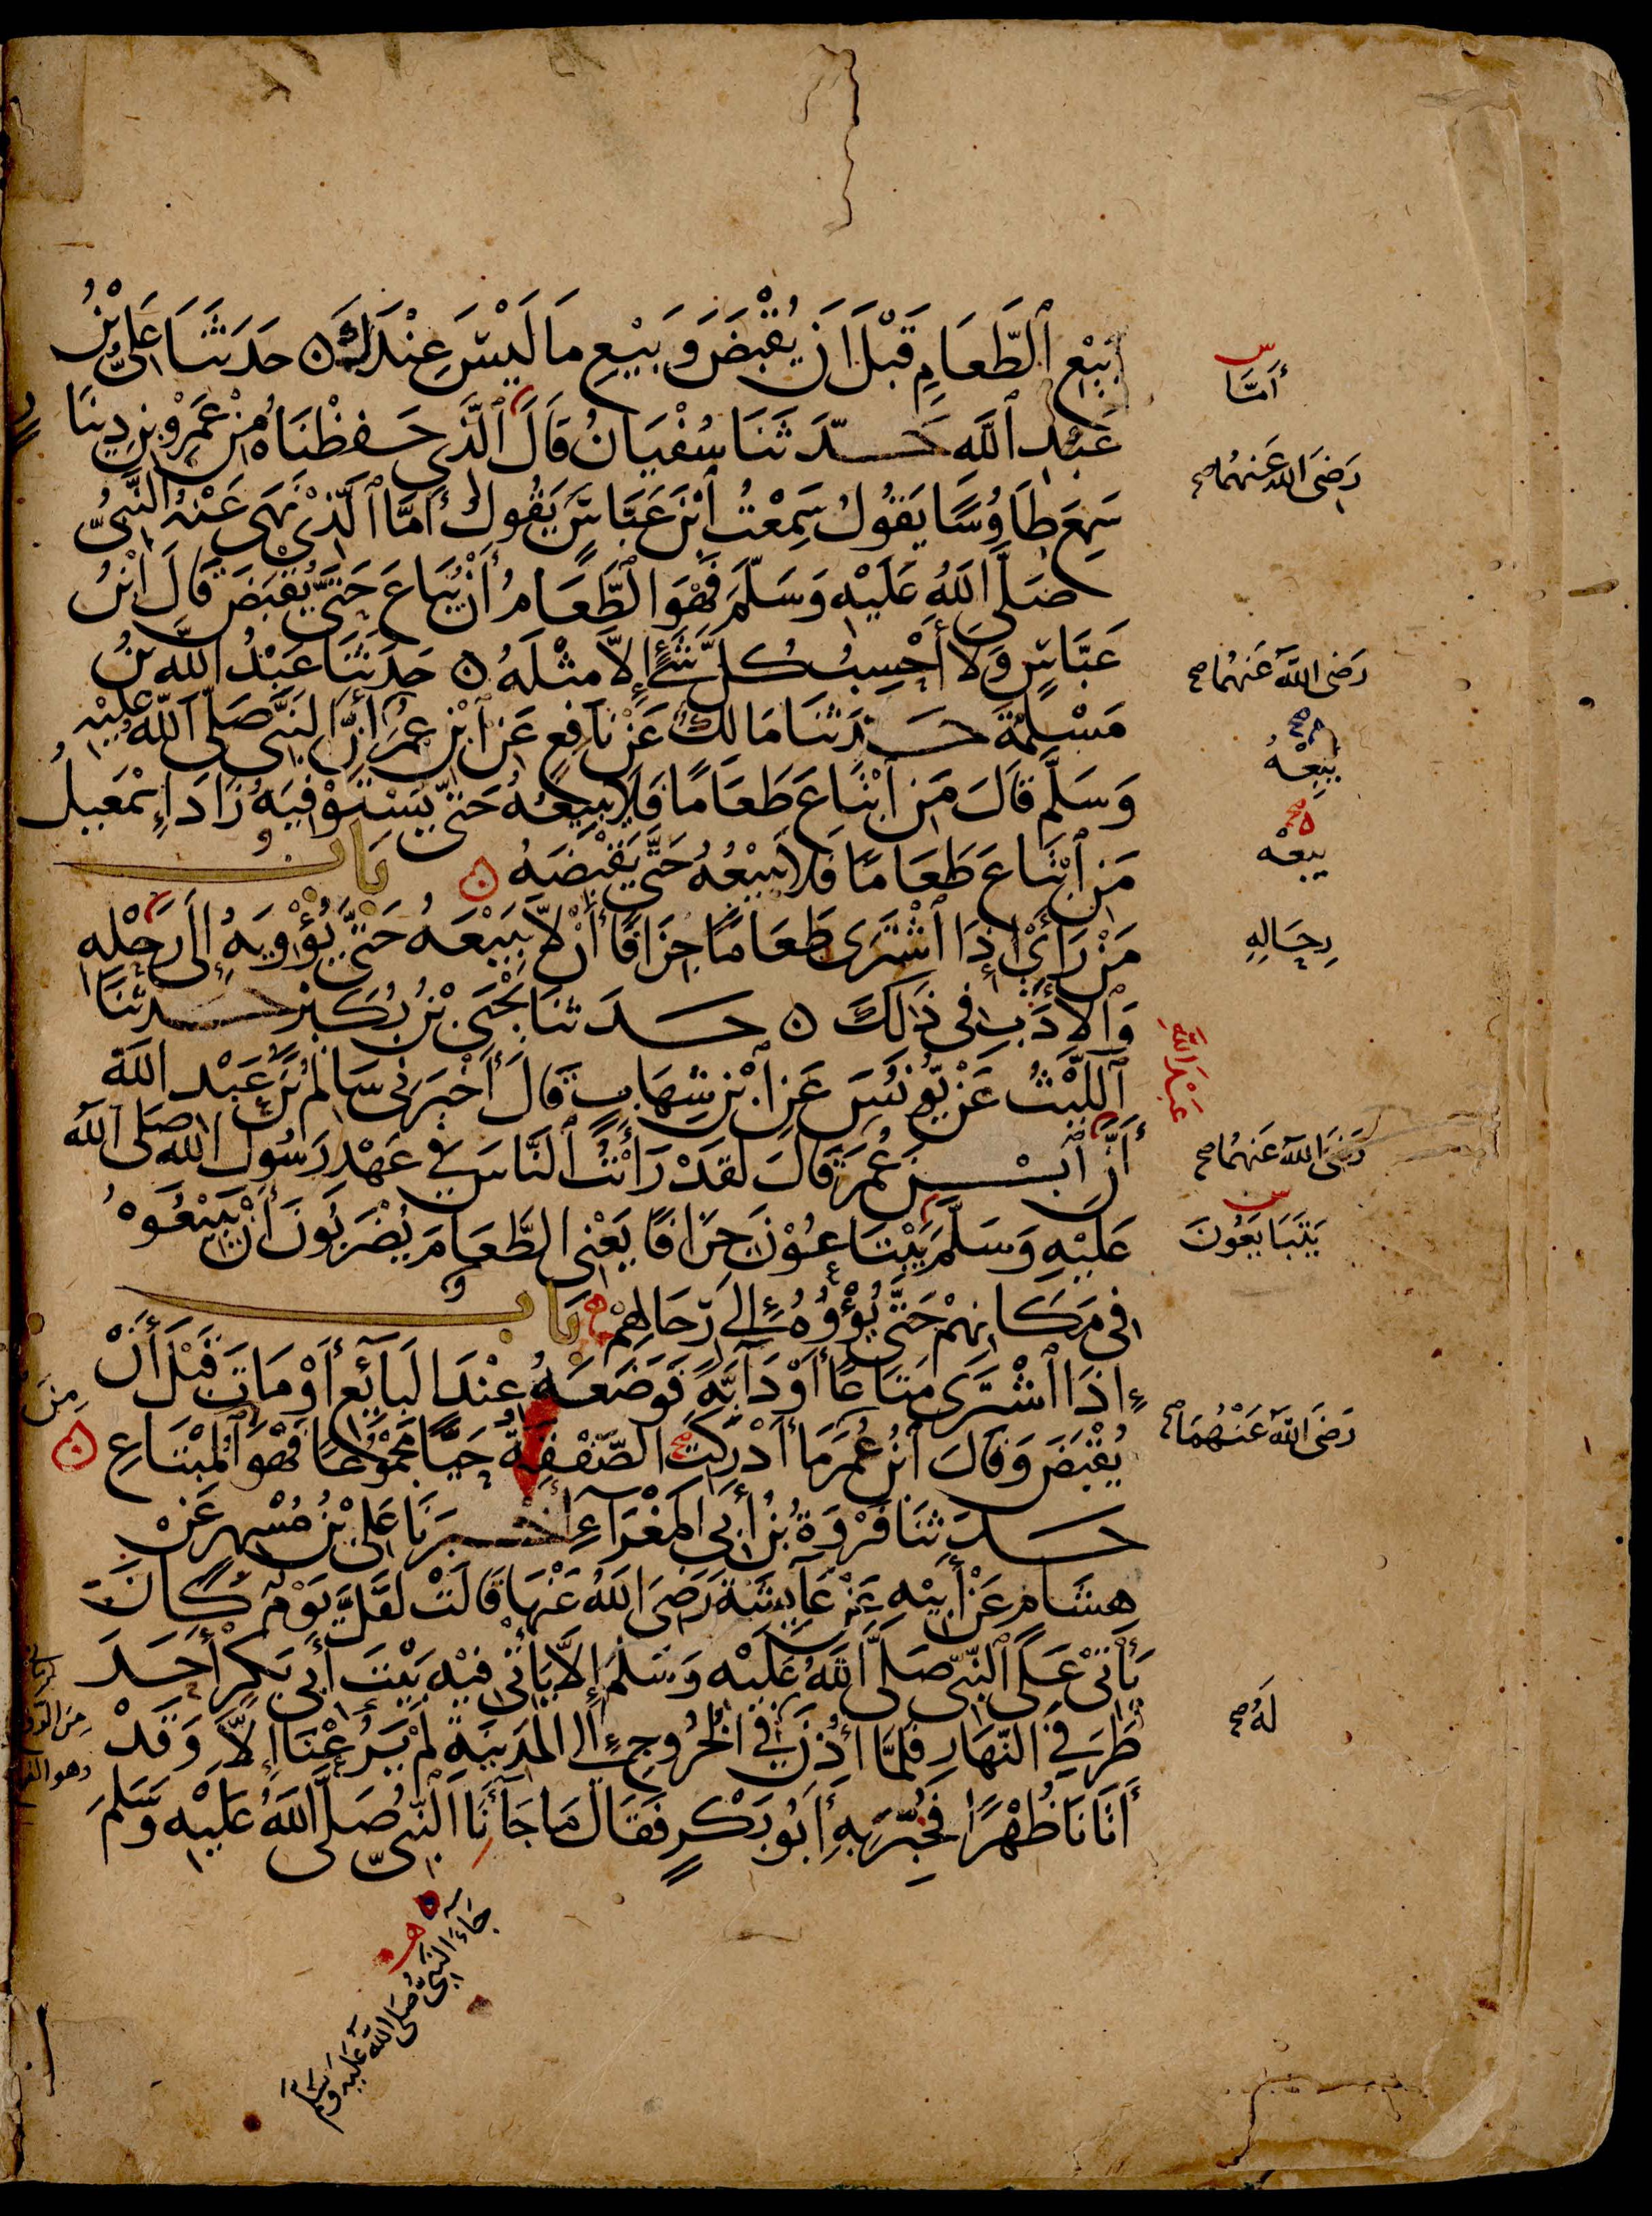 بَيْعِ ٱلطَّعَامِ قَبْلَ اَنْ يُقْبَضَ وَبَيْعِ مَا لَيْسَ عِنْدَكَ ۝ حَدَثَنَا عَلِيُّ بْنُ
عَبْدِ ٱللَّهِ حَدَّثَنَا سُفْيَانُ قَالَ ٱلَّذِي حَفِظْنَاهُ مِنْ عَمْرِو بْنِ دِينَا
رٍ
سَمِعَ طَاوُسًا يَقُولُ سَمِعْتُ ٱبْنَ عَبَّاسٍ يَقُولُ أَمَّا ٱلَّذِيْ نَهَى عَنْهُ النَّبِيُّ
صَلَّى اللَّهُ عَلَيْهِ وَسَلَّمَ فَهْوَ الطَّعَامُ أَنْ يُبَاعَ حَتَّى يُقْبَضَ قَالَ ابْنُ
عَبَّاسٍ وَلَا أَحْسِبُ كُلَّ شَيْءٍ إِلَّا مِثْلَهُ ۝ حَدَثَنَا عَبْدُ اللَّهِ بْنُ
مَسْلَمَةَ حَدَثَنَا مَالِكٌ عَنْ نَافِعٍ عَنِ ٱبْنِ عُمَرَ أَنَّ النَّبِيَّ صَلَّى اللَّهُ عَلَيْهِ
وَسَلَّمَ قَالَ مَنِ ٱبْتَاعَ طَعَامًا فَلَا يَبِيعُهُ حَتَّى يَسْتَوْفِيَهُ زَادَ إِسْمَعِيلُ
مَنِ ٱبْتَاعَ طَعَامًا فَلَا يَبِيْعُهُ حَتَّى يَقْبِضَهُ ۝ بَابُ
مَنْ رَأَىْ إِذَا ٱشْتَرَى طَعَامًا جِزَافًا أَنْ لَا يَبِيْعَهُ حَتَّى يُؤْوِيَهُ إِلَى رَحْلِهِ
وَٱلْأَدَبِ فِي ذَلِكَ ۝ حَدَثَنَا يَحْيَى بْنُ بُكَيْرٍ حَدَثَنَا
ٱللَّيْثُ عَنْ يُونُسَ عَنِ ٱبْنِ شِهَابٍ قَالَ أَخْبَرَنِي سَالِمُ بْنُ عَبْدِ اللَّهِ
أَنَّ ٱبْنَ عُمَرَ قَالَ لَقَدْ رَأَيْتُ ٱلنَّاسَ فِي عَهْدِ رَسُولِ اللَّهِ صَلَّى اللَّهُ
عَلَيْهِ وَسَلَّمَ يَبْتَاعُوْنَ جِزَافًا يَعْنِي الطَّعَامَ يُضْرَبُونَ أَنْ يَبِيْعُوْهُ
فِي مَكَانِهِمْ حَتَّى يُؤْوُوْهُ إِلَى رِحَالِهِمْ بَابُ
إِذَا ٱشْتَرَى مَتَاعًا أَوْ دَابَّةً فَوَضَعَهُ عِنْدَ البَائِعِ أَوْ مَاتَ قَبْلَ أَنْ
يُقْبَضَ وَقَالَ ٱبْنُ عُمَرَ مَا أَدْرَكَتِ الصَّفْقَةُ حَيًّا مَجْمُوْعًا فَهْوَ ٱلْمُبْتَاعِ ۝
مِنَ
حَدَثَنَا فَرْوَةُ بْنُ أَبِي المَغْرَاءِ أَخْبَرَنَا عَلِيُّ بْنُ مُسْهِرٍ عَنْ
هِشَامٍ عَنْ أَبِيْهِ عَنْ عَائِشَةَ رَضِيَ اللَّهُ عَنْهَا قَالَتْ لَقَلَّ يَوْمٌ كَانَ
يَأْتِيْ عَلَى ٱلنَّبِيِّ صَلَّى ٱللَّهُ عَلَيْهِ وَسَلَّمَ إِلَّا يَأْتِي فِيْهِ بَيْتَ أَبِي بَكْرٍ أَحَدَ
طَرَفَيِ النَّهَارِ فَلَمَّا أُذِنَ فِي الْخُرُوجِ إِلَى الْمَدِينَةِ لَمْ يَرُعْنَا إِلَّا وَقَدْ
أَتَانَا ظُهْرًا فَخُبِّرَ بِهِ أَبُو بَكْرٍ فَقَالَ مَا جَاءَنَا النَّبِيُّ صَلَّى اللَّهُ عَلَيْهِ وَسَلَّمَ
أَمَّا
رَضِيَ اللهُ عَنْهُمَا صح
رَضِيَ اللَّهُ عَنْهُمَا صح
يَبِعْهُ
يبعْه
رِحَالِهِ
عَبْدَ اللَّهِ
رَضِيَ اللَّهُ عَنْهُمَا صح
يَتَبَايَعُونَ
رَضِيَ اللَّهُ عَنْهُمَا صح
لَهُ صح
جَاءَ النَّبِيُّ صَلَّى اللَّهُ عَلَيْهِ وَسَلَّمَ